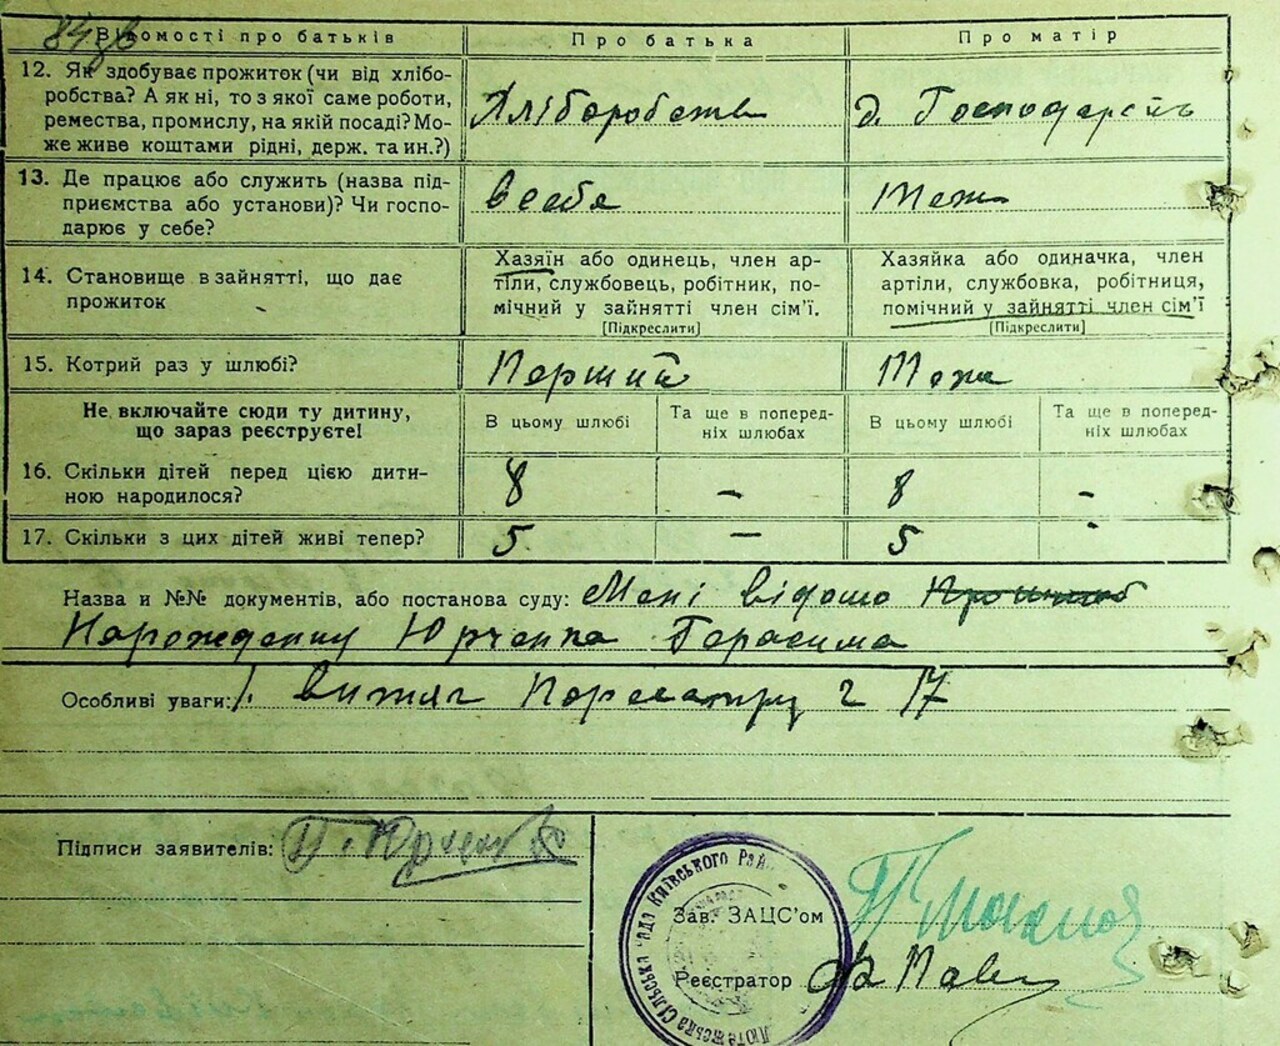 Відомості про батьків
Про батька
Про матір
12. Як здобуває прожиток (чи від хлібо-
робства? А як ні, то з якої саме роботи,
ремества, промислу, на якій посаді? Мо-
же живе коштами рідні, держ. та ин.?)
Хліборобств
д. Господарств
13. Де працює або служить (назва під-
приємства або установи)? Чи госпо-
дарює у себе?
в себе
Теж
14. Становище в зайнятті, що дає
прожиток
Хазяїн або одинець, член ар-
тіли, службовець, робітник, по-
мічний у зайнятті член сім'ї.
[Підкреслити]
Хазяйка або одиначка, член
артіли, службовка, робітниця,
помічний у зайнятті член сім'ї
[Підкреслити]
15. Котрий раз у шлюбі?
Перший
Тож
Не включайте сюди ту дитину,
що зараз реєструєте!
В цьому шлюбі
Та ще в поперед-
ніх шлюбах
В цьому шлюбі
Та ще в поперед-
ніх шлюбах
16. Скільки дітей перед цією дити-
ною народилося?
8
-
8
-
17. Скільки з цих дітей живі тепер?
5
-
5
-
Назва и №№ документів, або постанова суду: Мені відомо
Нарождению Юрченка Герасима
Особливі уваги: 1. витяг г 17
Підписи заявителів: Г. Юрченко
Зав. ЗАЦС'ом
Реєстратор
Лютежська Сільська Рада Київського Рай